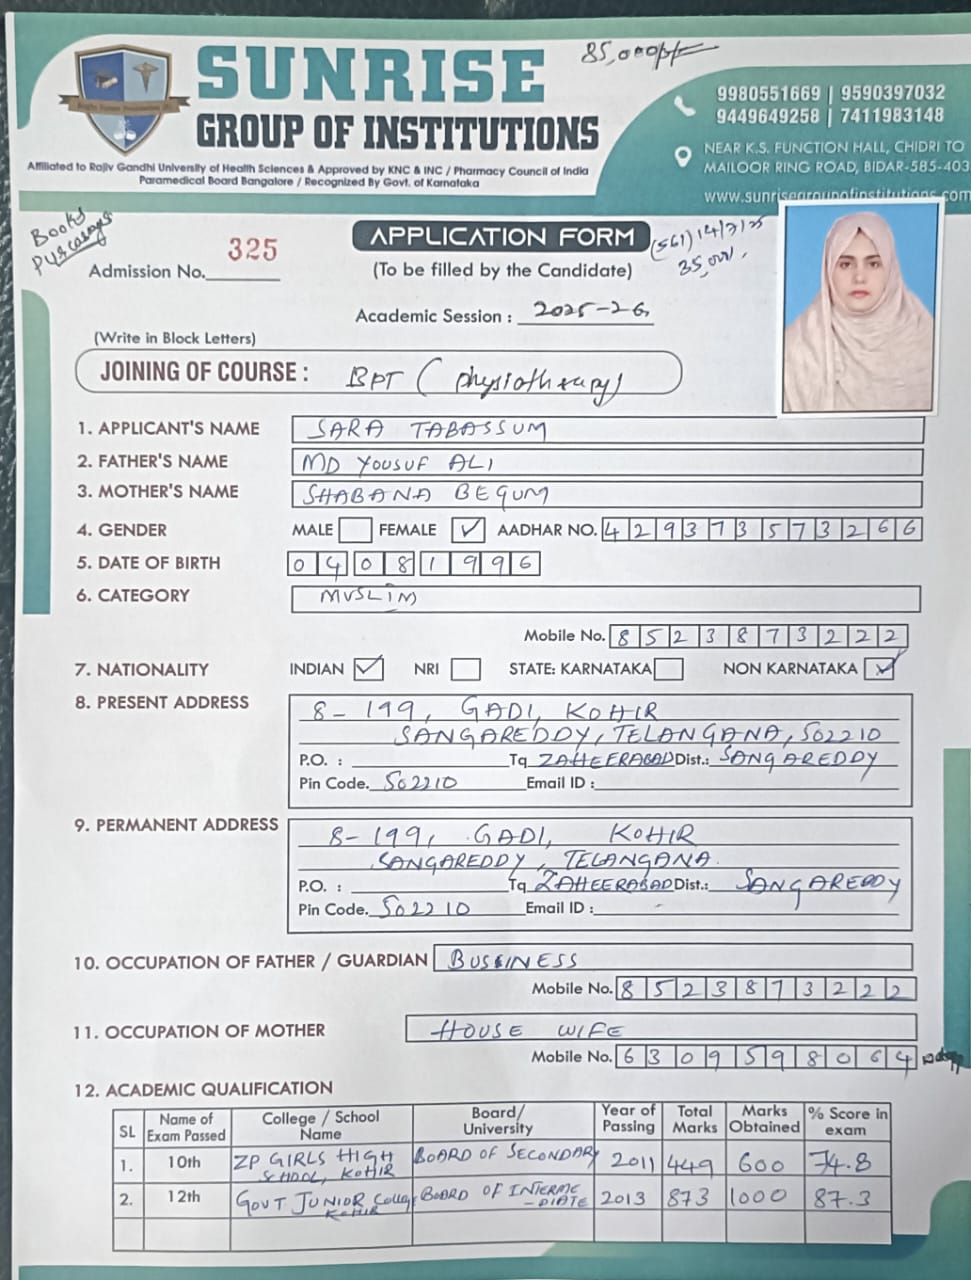 SUNRISE
GROUP OF INSTITUTIONS
Affiliated to Rajiv Gandhi University of Health Sciences & Approved by KNC & INC / Pharmacy Council of India
Paramedical Board Bangalore / Recognized By Govt. of Karnataka
9980551669 | 9590397032
9449649258 | 7411983148
NEAR K.S. FUNCTION HALL, CHIDRI TO
MAILOOR RING ROAD, BIDAR-585-403
www.sunrisegroupofinstitutions.com
85,000
Books
Admission No. 325
APPLICATION FORM
(To be filled by the Candidate)
(561) 14/7/25
35,000
Academic Session : 2025-26
(Write in Block Letters)
JOINING OF COURSE : BPT (Physiotherapy)
1. APPLICANT'S NAME SARA TABASSUM
2. FATHER'S NAME MD YOUSUF ALI
3. MOTHER'S NAME SHABANA BEGUM
4. GENDER MALE FEMALE ✓ AADHAR NO. 429373573266
5. DATE OF BIRTH 04081996
6. CATEGORY MUSLIM
Mobile No. 8523873222
7. NATIONALITY INDIAN ✓ NRI STATE: KARNATAKA NON KARNATAKA ✓
8. PRESENT ADDRESS 8-199, GADI, KOHIR
SANGAREDDY, TELANGANA, 502210
P.O. : Tq ZAHEERABAD Dist.: SANGAREDDY
Pin Code. 502210 Email ID :
9. PERMANENT ADDRESS 8-199, GADI, KOHIR
SANGAREDDY, TELANGANA.
P.O. : Tq ZAHEERABAD Dist.: SANGAREDDY
Pin Code. 502210 Email ID :
10. OCCUPATION OF FATHER / GUARDIAN BUSSINESS
Mobile No. 8523873222
11. OCCUPATION OF MOTHER HOUSE WIFE
Mobile No. 6309598064
12. ACADEMIC QUALIFICATION
SL Name of Exam Passed College / School Name Board/ University Year of Passing Total Marks Marks Obtained % Score in exam
1. 10th ZP GIRLS HIGH SCHOOL, KOHIR BOARD OF SECONDARY 2011 449 600 74.8
2. 12th GOVT JUNIOR College KOHIR BOARD OF INTERME-DIATE 2013 873 1000 87.3